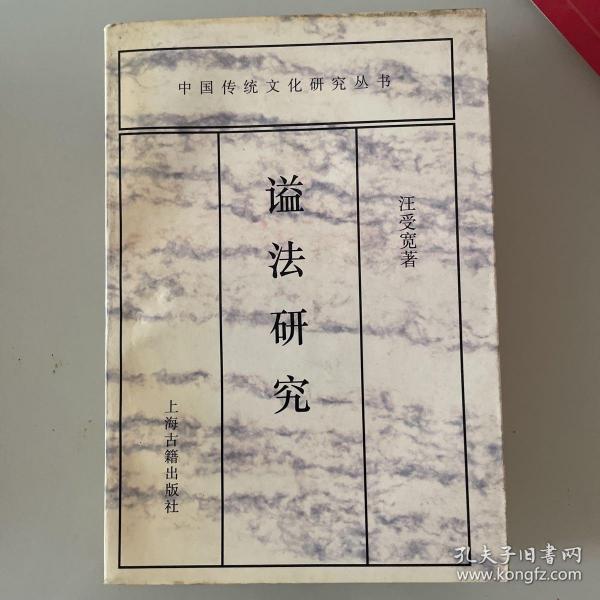 中国传统文化研究丛书
谥法研究
汪受宽著
上海古籍出版社
孔夫子旧书网
www.kongfz.com